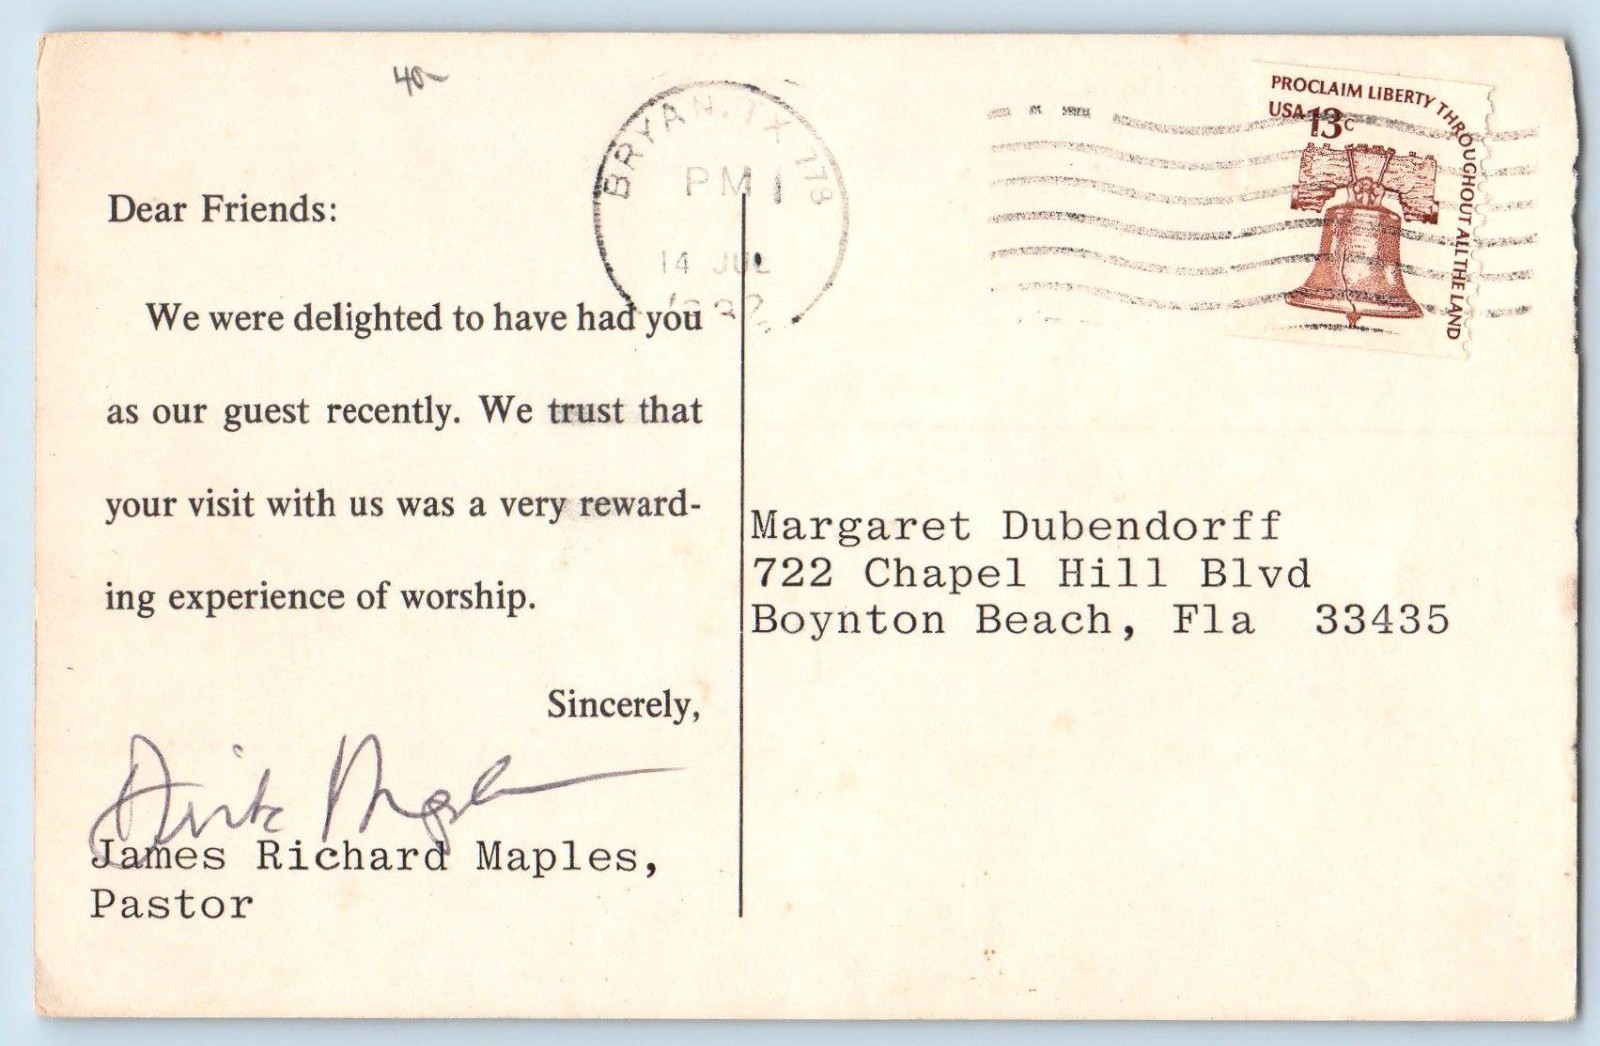 40-
BRYAN, TX 778
PM
14 JUL
PROCLAIM LIBERTY THROUGHOUT ALL THE LAND
USA 13c
Dear Friends:
We were delighted to have had you
as our guest recently. We trust that
your visit with us was a very reward-
ing experience of worship.
Sincerely,
James Richard Maples,
Pastor
Margaret Dubendorff
722 Chapel Hill Blvd
Boynton Beach, Fla 33435